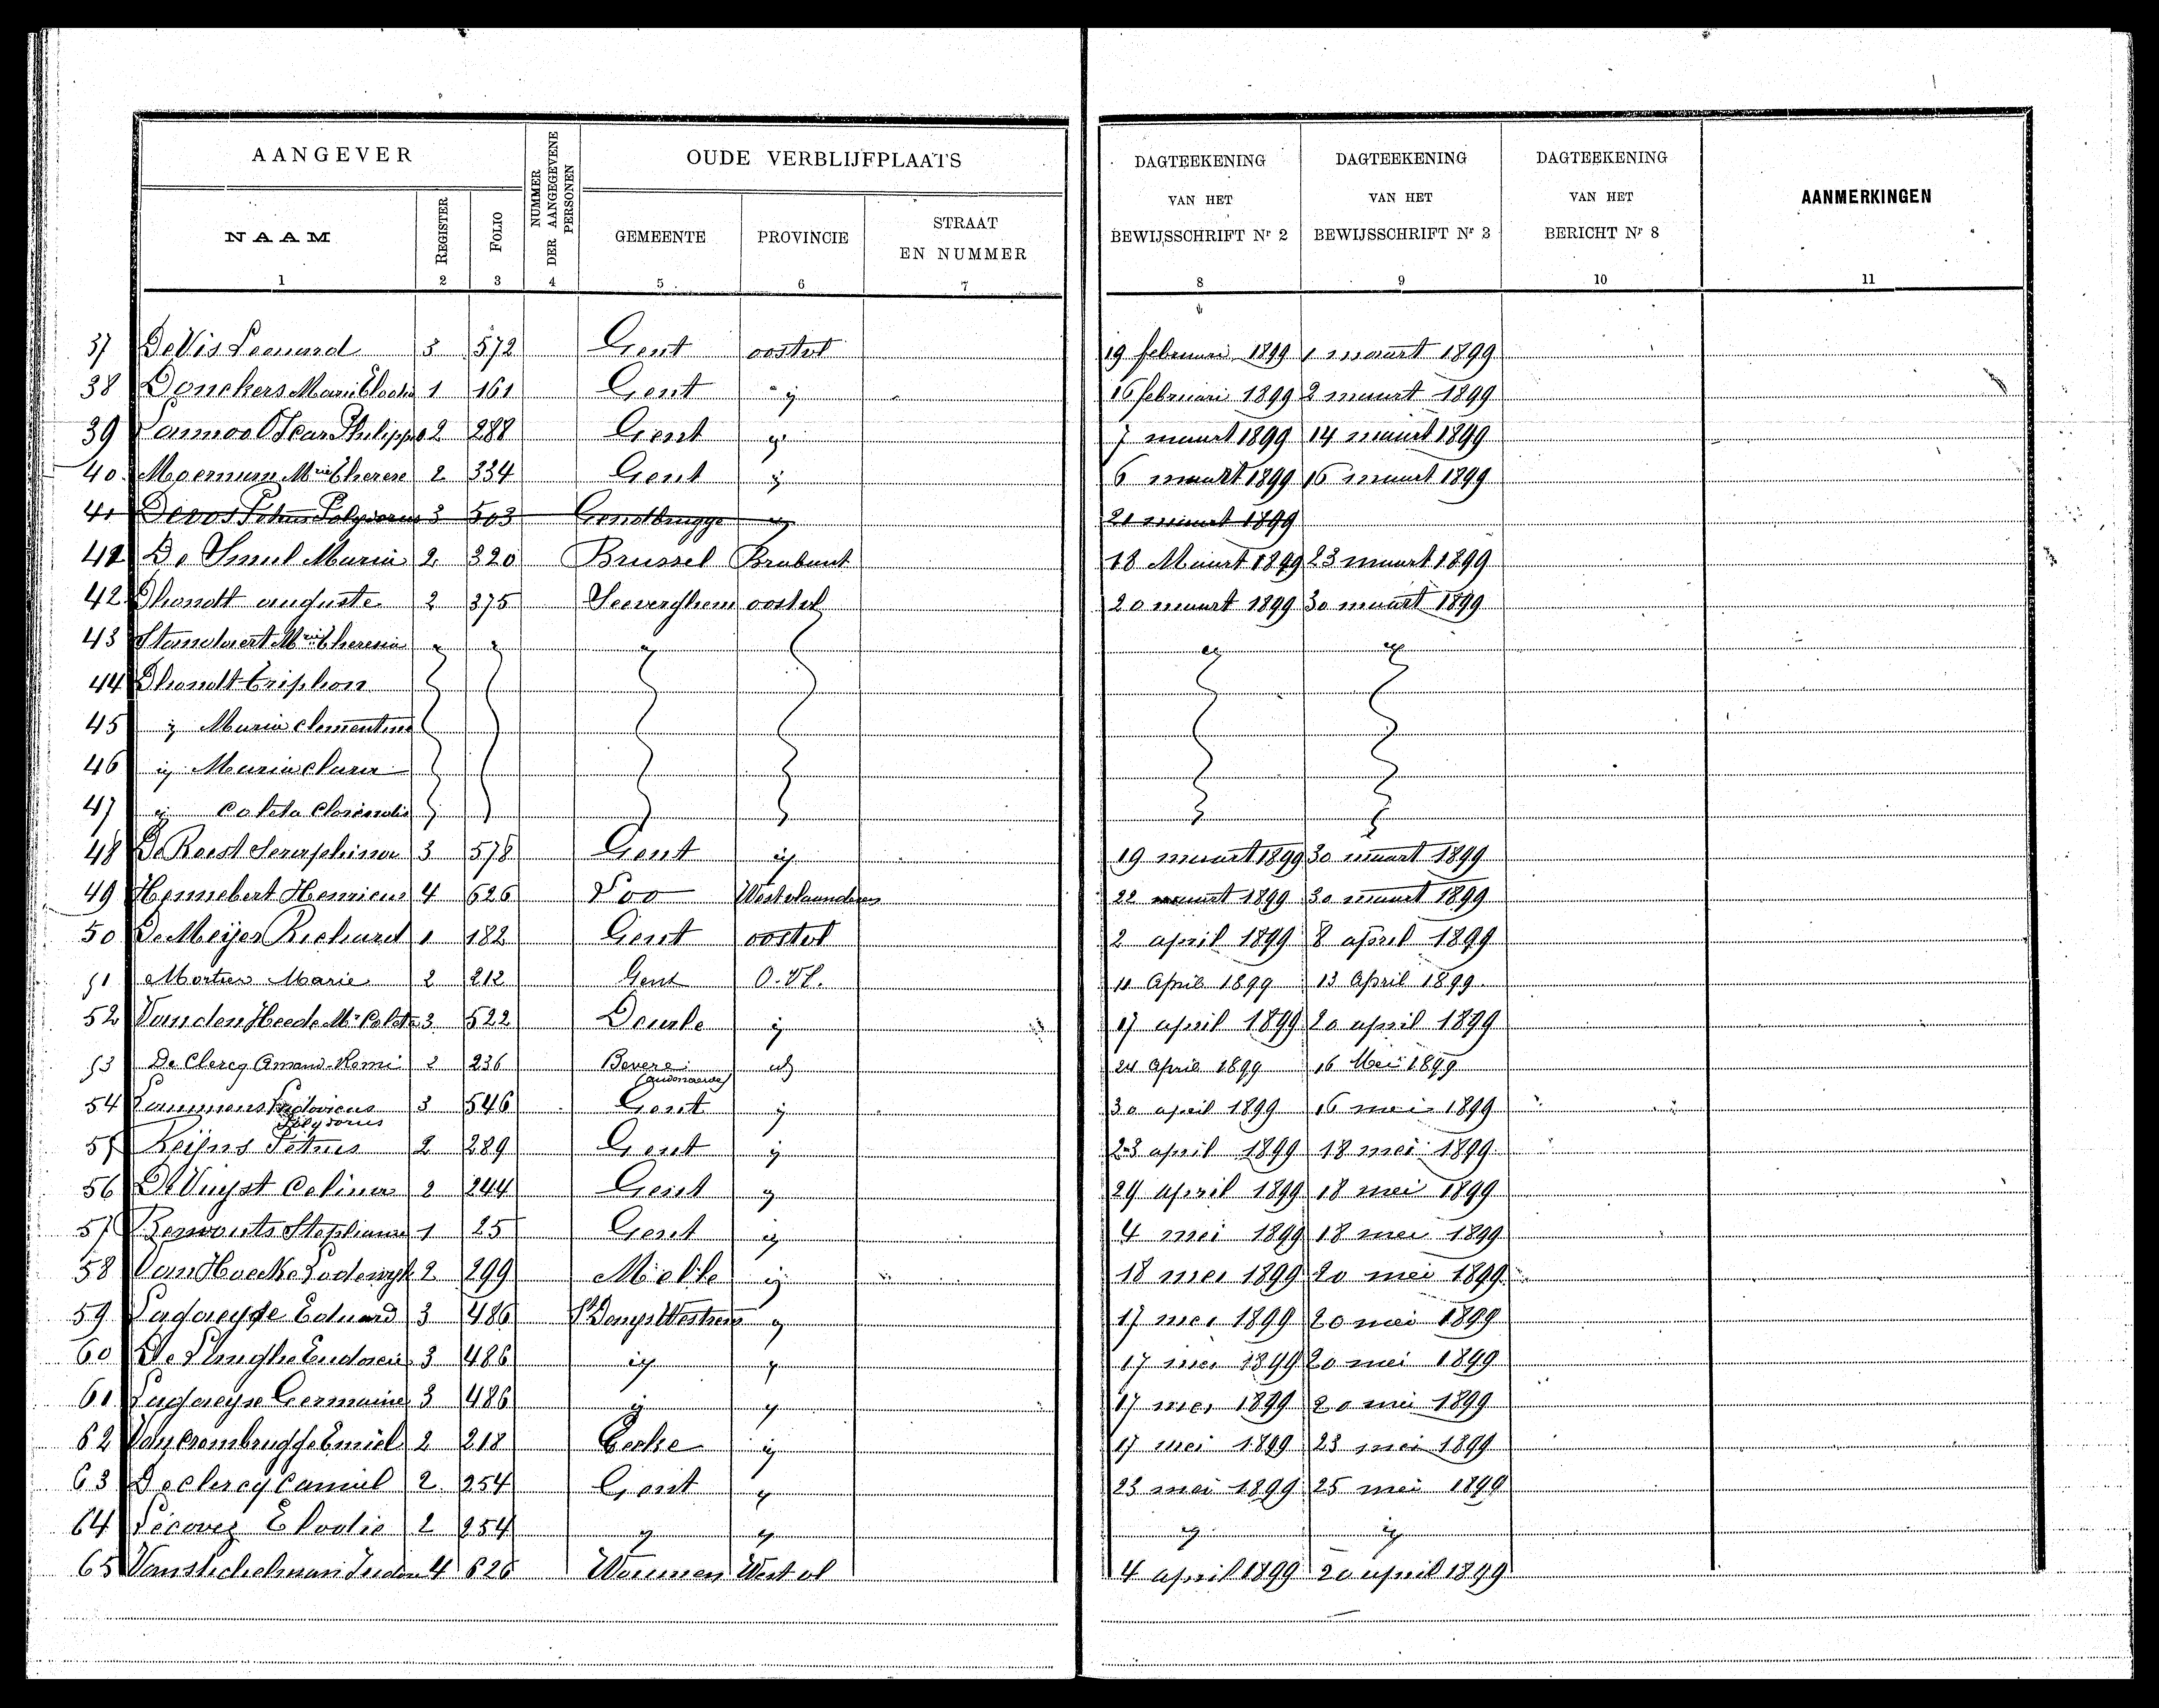 AANGEVER
NUMMER DER AANGEGEVENE PERSONEN
OUDE VERBLIJFPLAATS
DAGTEEKENING VAN HET BEWIJSSCHRIFT Nr 2
DAGTEEKENING VAN HET BEWIJSSCHRIFT Nr 3
DAGTEEKENING VAN HET BERICHT Nr 8
AANMERKINGEN
NAAM REGISTER FOLIO GEMEENTE PROVINCIE STRAAT EN NUMMER
1 2 3 4 5 6 7 8 9 10 11
37 De Vis Leonard 3 572 Gent oostvl 19 februari 1899 1 maart 1899
38 Donckers Marie 1 161 Gent ij 16 februari 1899 2 maart 1899
39 Lannoo Oscar Philippe 2 288 Gent ij 7 maart 1899 14 maart 1899
40 Moerman Mrie Therese 2 334 Gent ij 6 maart 1899 16 maart 1899
41 Devos Petrus Polydorus 3 503 Gendbrugge ij 21 maart 1899
41 De Smul Maria 2 320 Brussel Brabant 18 Maart 1899 23 maart 1899
42 Dhondt auguste 2 375 Seeverghem oostvl 20 maart 1899 30 maart 1899
43 Standaert Mrie Theresia ij ij ij ij ij
44 Dhondt Triphon
45 ij Maria Clementina
46 ij Maria Clara
47 ij Coleta
48 De Reest Seraphina 3 578 Gent ij 19 maart 1899 30 maart 1899
49 Hennebert Henricus 4 626 Loo Westvlaanderen 22 maart 1899 30 maart 1899
50 De Meijer Richard 1 182 Gent oostvl 2 april 1899 8 april 1899
51 Mortier Marie 2 212 Gent O. Vl. 11 April 1899 13 April 1899
52 Van den Heede Mie Coleta 3 522 Deurle ij 17 april 1899 20 april 1899
53 De Clercq Amand-Remi 2 236 Bevere ij 24 April 1899 16 Mei 1899
(audenaerde)
54 Lammens Ludovicus 3 546 Gent ij 30 april 1899 16 mei 1899
Polydorus
55 Reijns Petrus 2 289 Gent ij 23 april 1899 18 mei 1899
56 De Vuyst Celina 2 244 Gent ij 29 april 1899 18 mei 1899
57 Stephanie 1 25 Gent ij 4 mei 1899 18 mei 1899
58 Van Hoecke Lodewyk 2 299 Melle ij 18 mei 1899 20 mei 1899
59 Eduard 3 486 St Denys Westrem ij 17 mei 1899 20 mei 1899
60 3 486 ij ij 17 mei 1899 20 mei 1899
61 Germaine 3 486 ij ij 17 mei 1899 20 mei 1899
62 Van Crombrugge Emiel 2 218 Eecke ij 17 mei 1899 23 mei 1899
63 Declercq Camiel 2 254 Gent ij 23 mei 1899 25 mei 1899
64 Elodie 2 254 ij ij ij ij
65 4 626 Woumen West vl 4 april 1899 20 april 1899